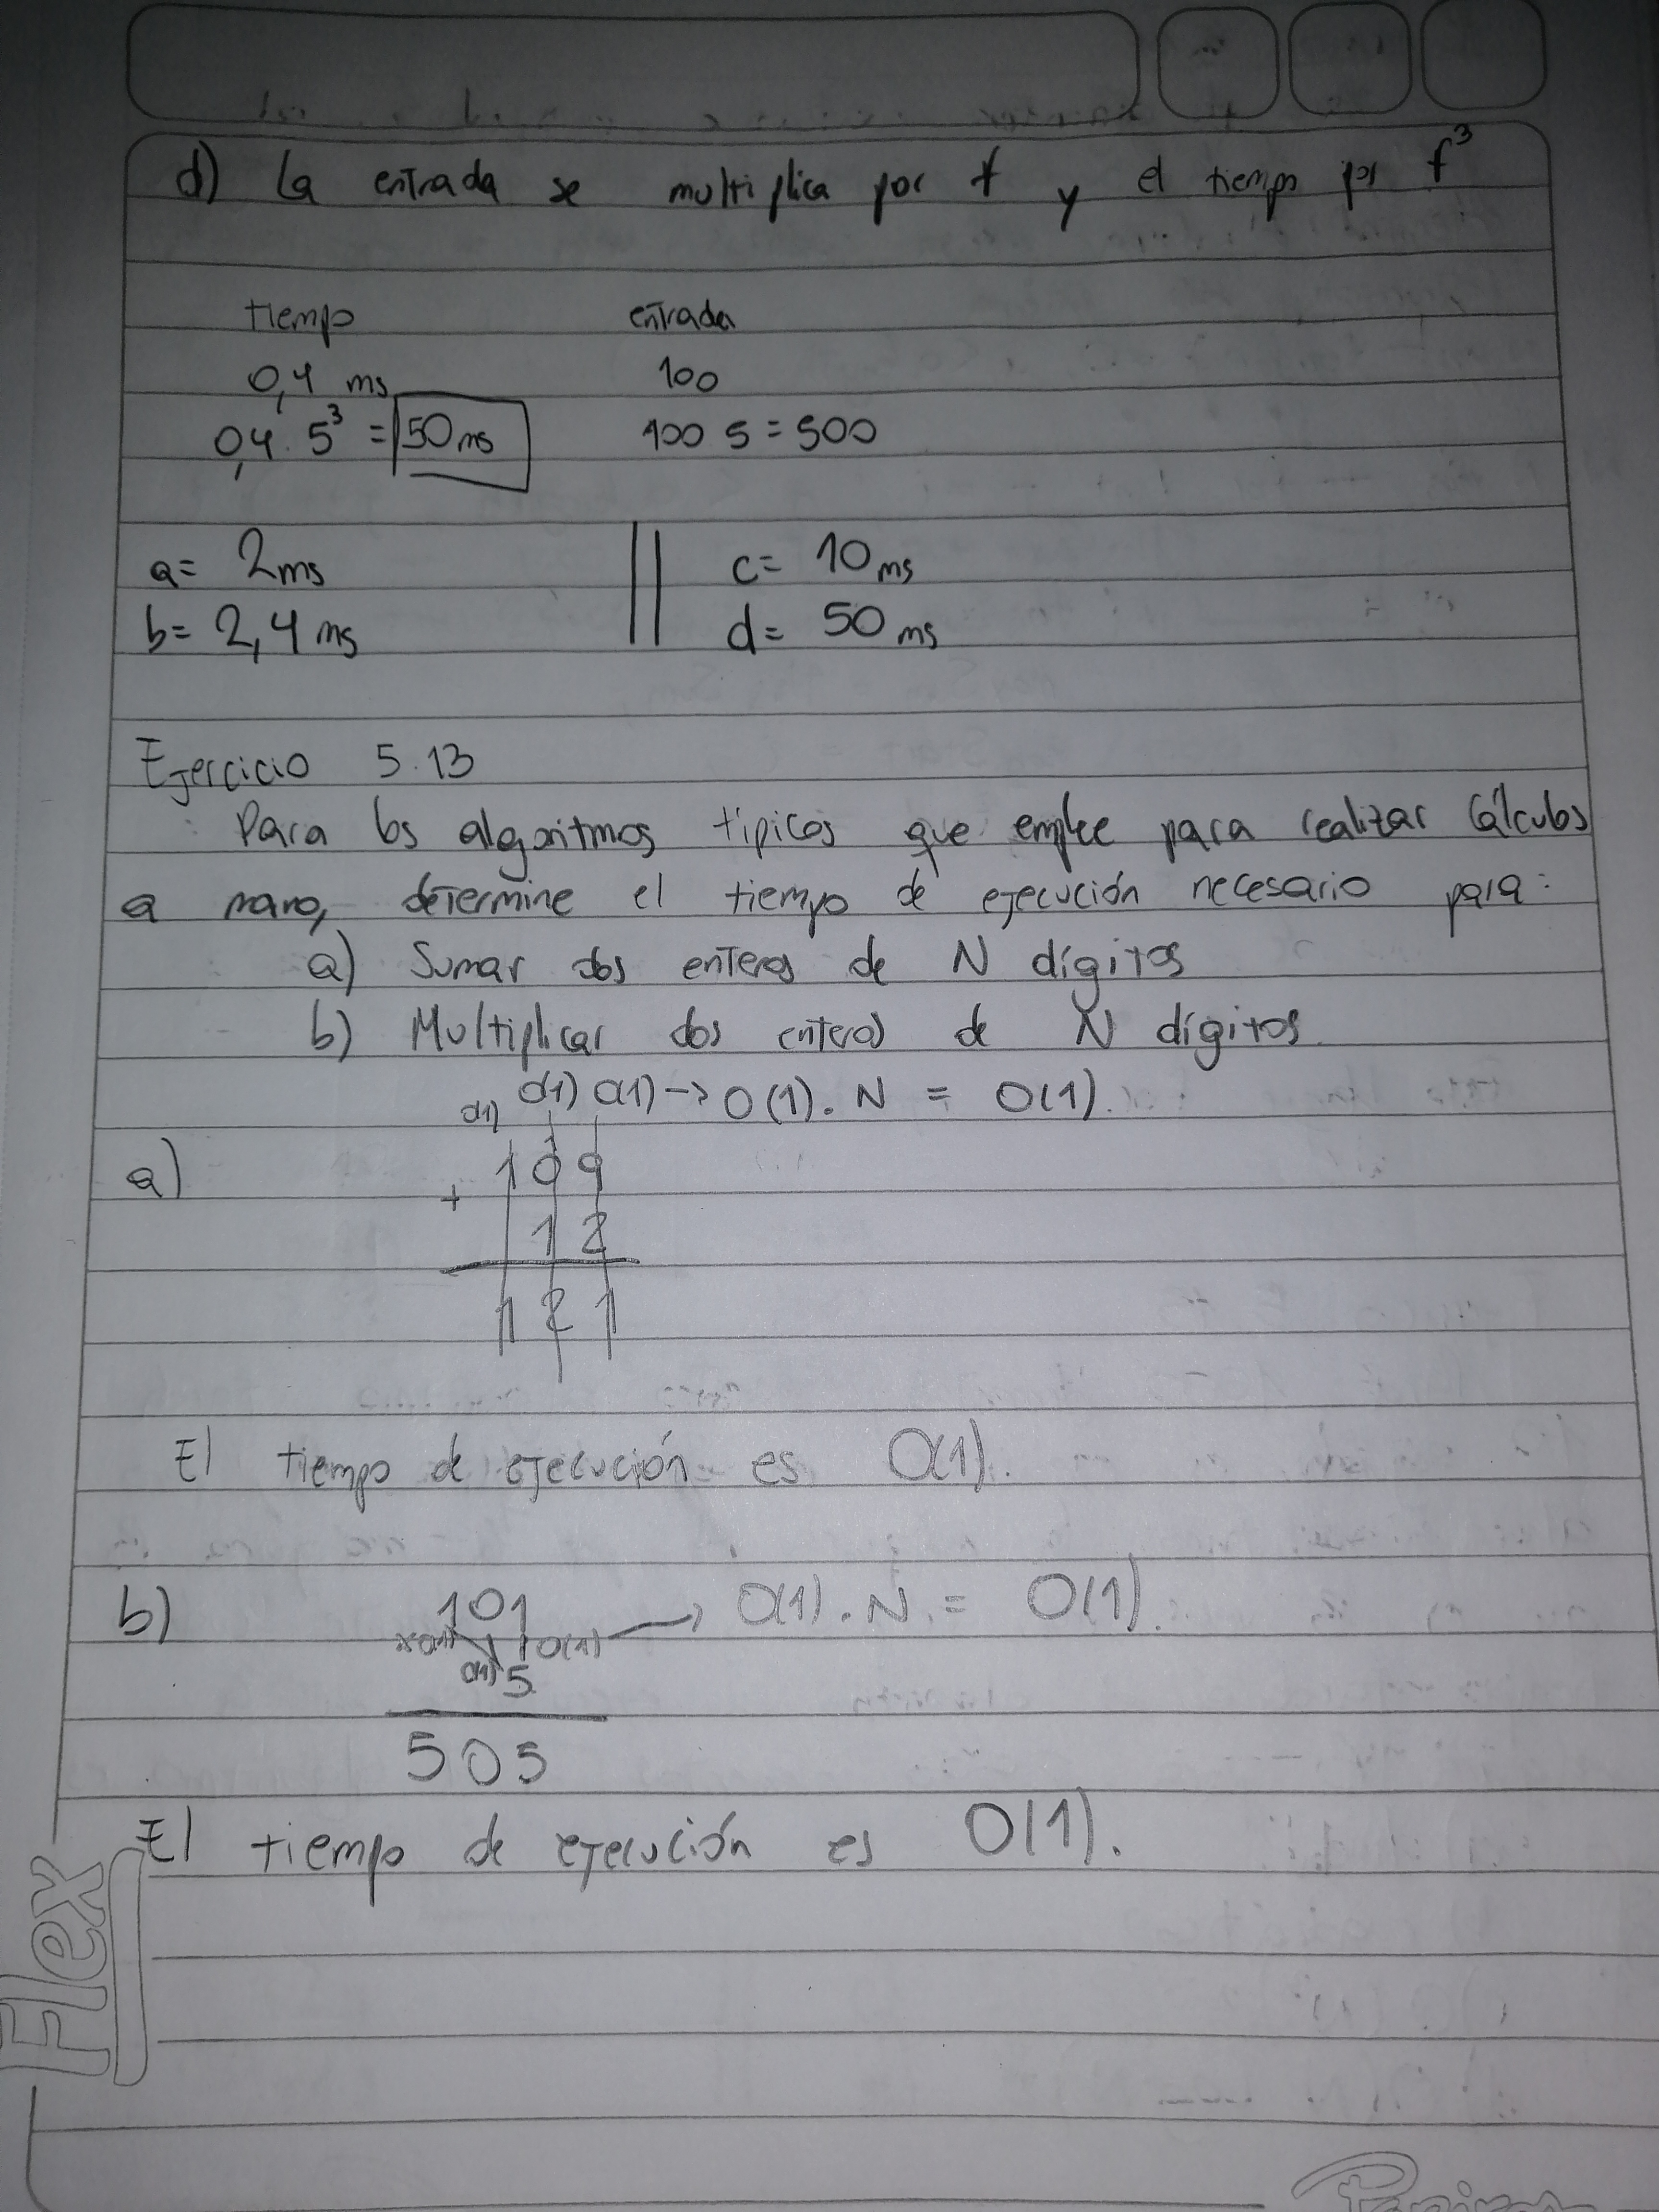 d) La entrada se multiplica por f y el tiempo por f³
tiempo entrada
0,4 ms 100
0,4 . 5³ = 50 ms 100 5 = 500
a = 2 ms c = 10 ms
b = 2,4 ms d = 50 ms
Ejercicio 5.13
Para los algoritmos típicos que emplee para realizar Cálculos
a mano, determine el tiempo de ejecución necesario para:
a) Sumar dos enteros de N dígitos
b) Multiplicar dos enteros de N dígitos
O(1) O(1) O(1) -> O(1). N = O(1).
a) 1
109
+
12
121
El tiempo de ejecución es O(1).
b) 101 → O(1). N = O(1).
x O(1) O(1)
O(1) 5
505
El tiempo de ejecución es O(1).
Flex